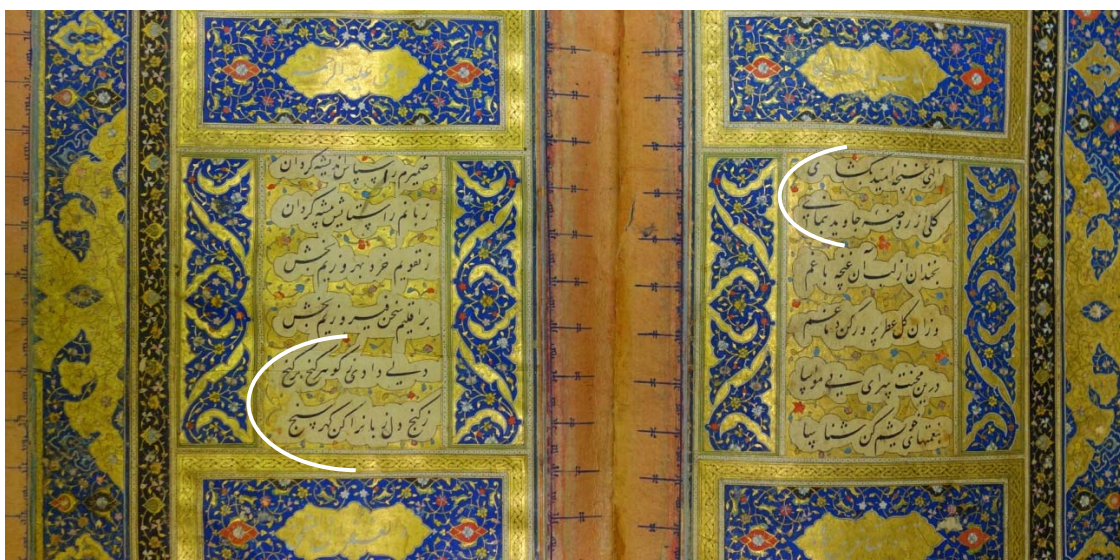 الهی غنچه امید بگشای
گلی از روضه جاوید بنمای
بخندان از لب آن غنچه باغم
وزان گل عطر پرور کن دماغم
درین محنت سرای بی مواسا
بنعمتهای خویشم کن شناسا
ضمیرم را سپاس اندیشه گردان
زبانم را ستایش پیشه گردان
ز تقویم خرد بهروزیم بخش
بر اقلیم سخن فیروزیم بخش
دلی دادی ز گوهر گنج بر گنج
ز گنج دل زبانرا کن گهر سنج